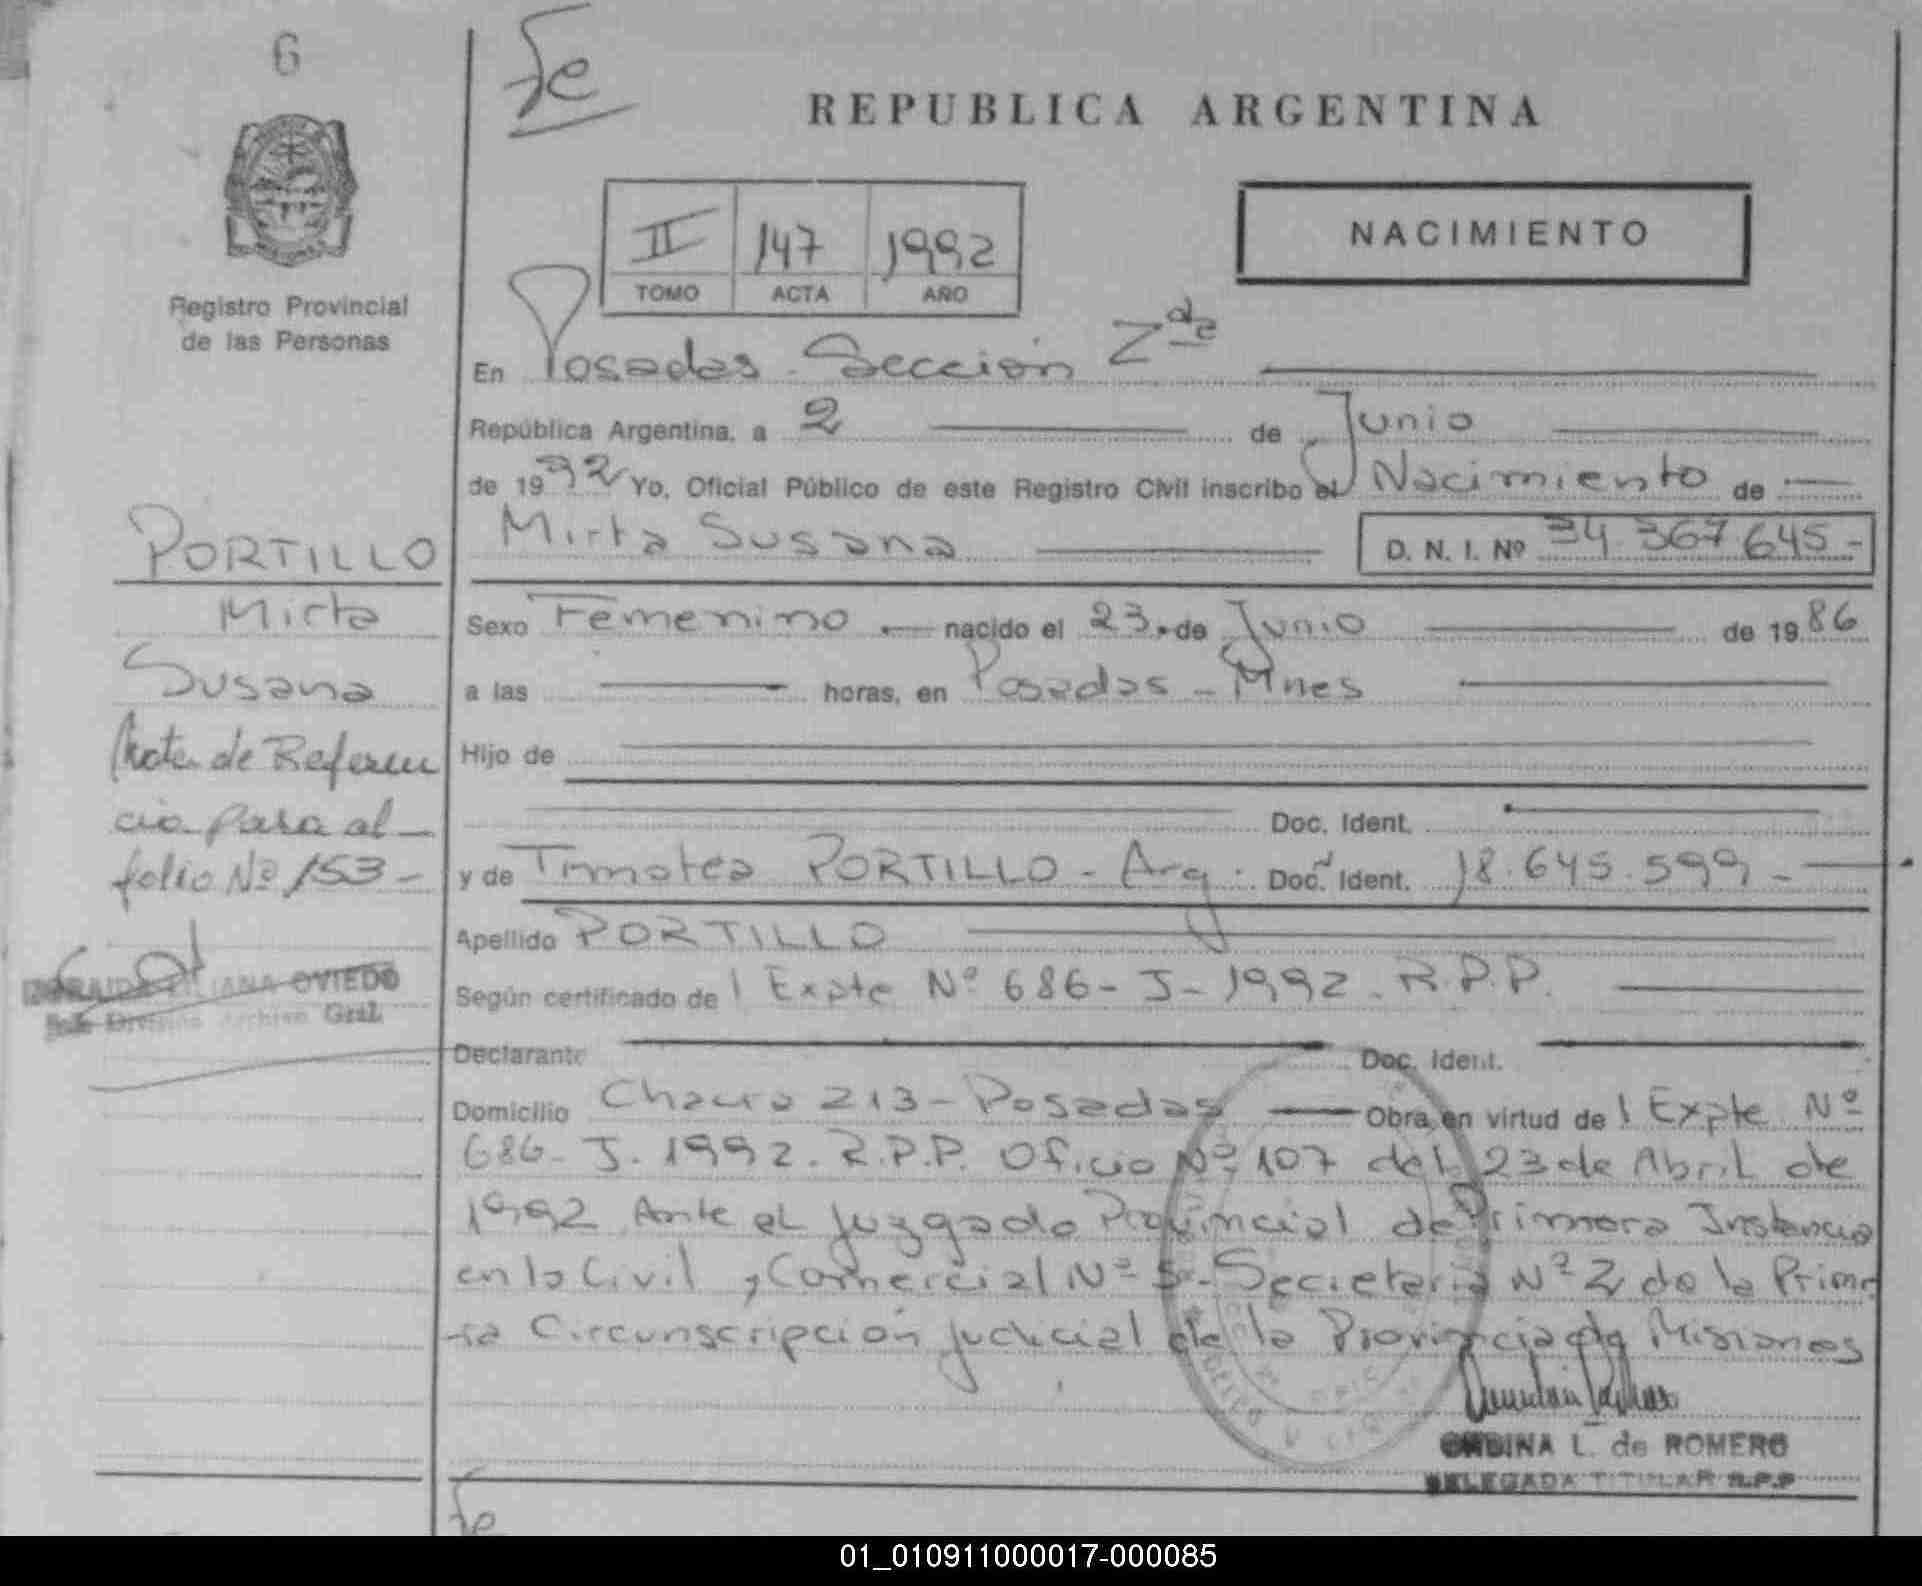 6
Fe
REPUBLICA ARGENTINA
NACIMIENTO
II 147 1992
TOMO ACTA AÑO
Registro Provincial
de las Personas
En Posadas - Sección 2da
República Argentina, a 2 de Junio
de 1992 Yo, Oficial Público de este Registro Civil inscribo el Nacimiento de
Mirta Susana D. N. I. Nº 34.367.645-
PORTILLO
Mirta
Susana
Nota de Referen
cia para al
folio Nº 153-
Sexo Femenino nacido el 23 de Junio de 1986
a las horas, en Posadas - Mnes
Hijo de
Doc. Ident.
y de Timotea PORTILLO - Arg. Doc. Ident. 18.645.599-
Apellido PORTILLO
Según certificado de Expte Nº 686-J-1992. R.P.P.
LILIANA OVIEDO
División Archivo Gral.
Declarante Doc. Ident.
Domicilio Chacra 213 - Posadas Obra en virtud de Expte Nº
686-J-1992. R.P.P. Oficio Nº 107 del 23 de Abril de
1992 Ante el Juzgado Provincial de Primera Instancia
en lo Civil y Comercial Nº 5 - Secretaria Nº 2 de la Prime
ra Circunscripción Judicial de la Provincia de Misiones
ONDINA L. de ROMERO
DELEGADA TITULAR R.P.P
Fe
01_010911000017-000085